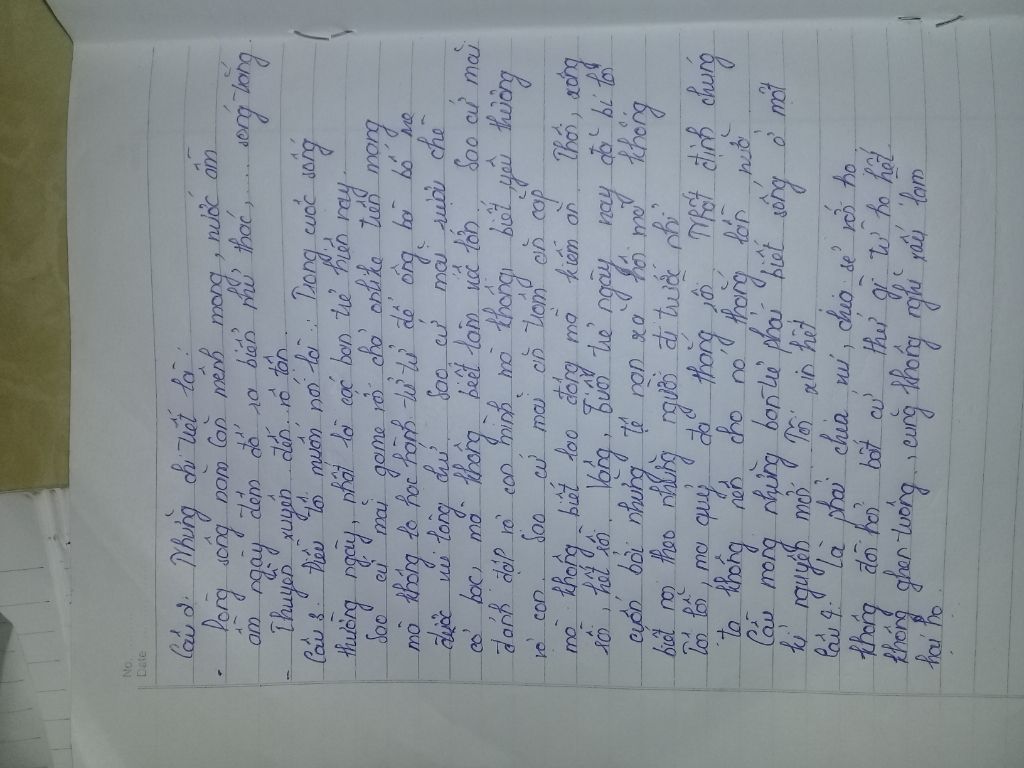 No.
Date
Câu 2: Những chi tiết là:
- Dòng sông năm Căn mênh mông, nước ầm
ầm ngày đêm đổ ra biển như thác, .... sông rộng
- Thuyền xuyên đến rồi tần
Câu 3: Điều tôi muốn nói là: Trong cuộc sống
thường ngày, nhất là các bạn trẻ hiện nay.
Sao cứ mãi game rồi chơi online tiền mạng
mà không lo học hành tử tế để ông bà bố mẹ
được vui lòng chứ. Sao cứ mãi rượu chè
cờ bạc, mà không biết làm việc lớn. Sao cứ mãi
đánh đập vợ con mình mà không biết yêu thương
vợ con. Sao cứ mãi ăn trộm ăn cắp
mà không biết lao động mà kiếm ăn. Thôi, xong
rồi, hết rồi. Vâng, giới trẻ ngày nay đã bị lôi
cuốn bởi những tệ nạn xã hội mà không
biết noi theo những người đi trước nhỉ
Tồi tệ, ma quỷ đã thắng rồi. Thất định chúng
ta không nên cho nó thắng lần nữa
Cầu mong những bạn trẻ phải biết sống ở một
kỉ nguyên mới. Tôi xin hết
Câu 4: Là phải chia vui, chia sẻ nỗi lo
không đòi hỏi bất cứ thứ gì từ họ hết
không ghen tuông, cũng không nghĩ xấu làm
hại họ.